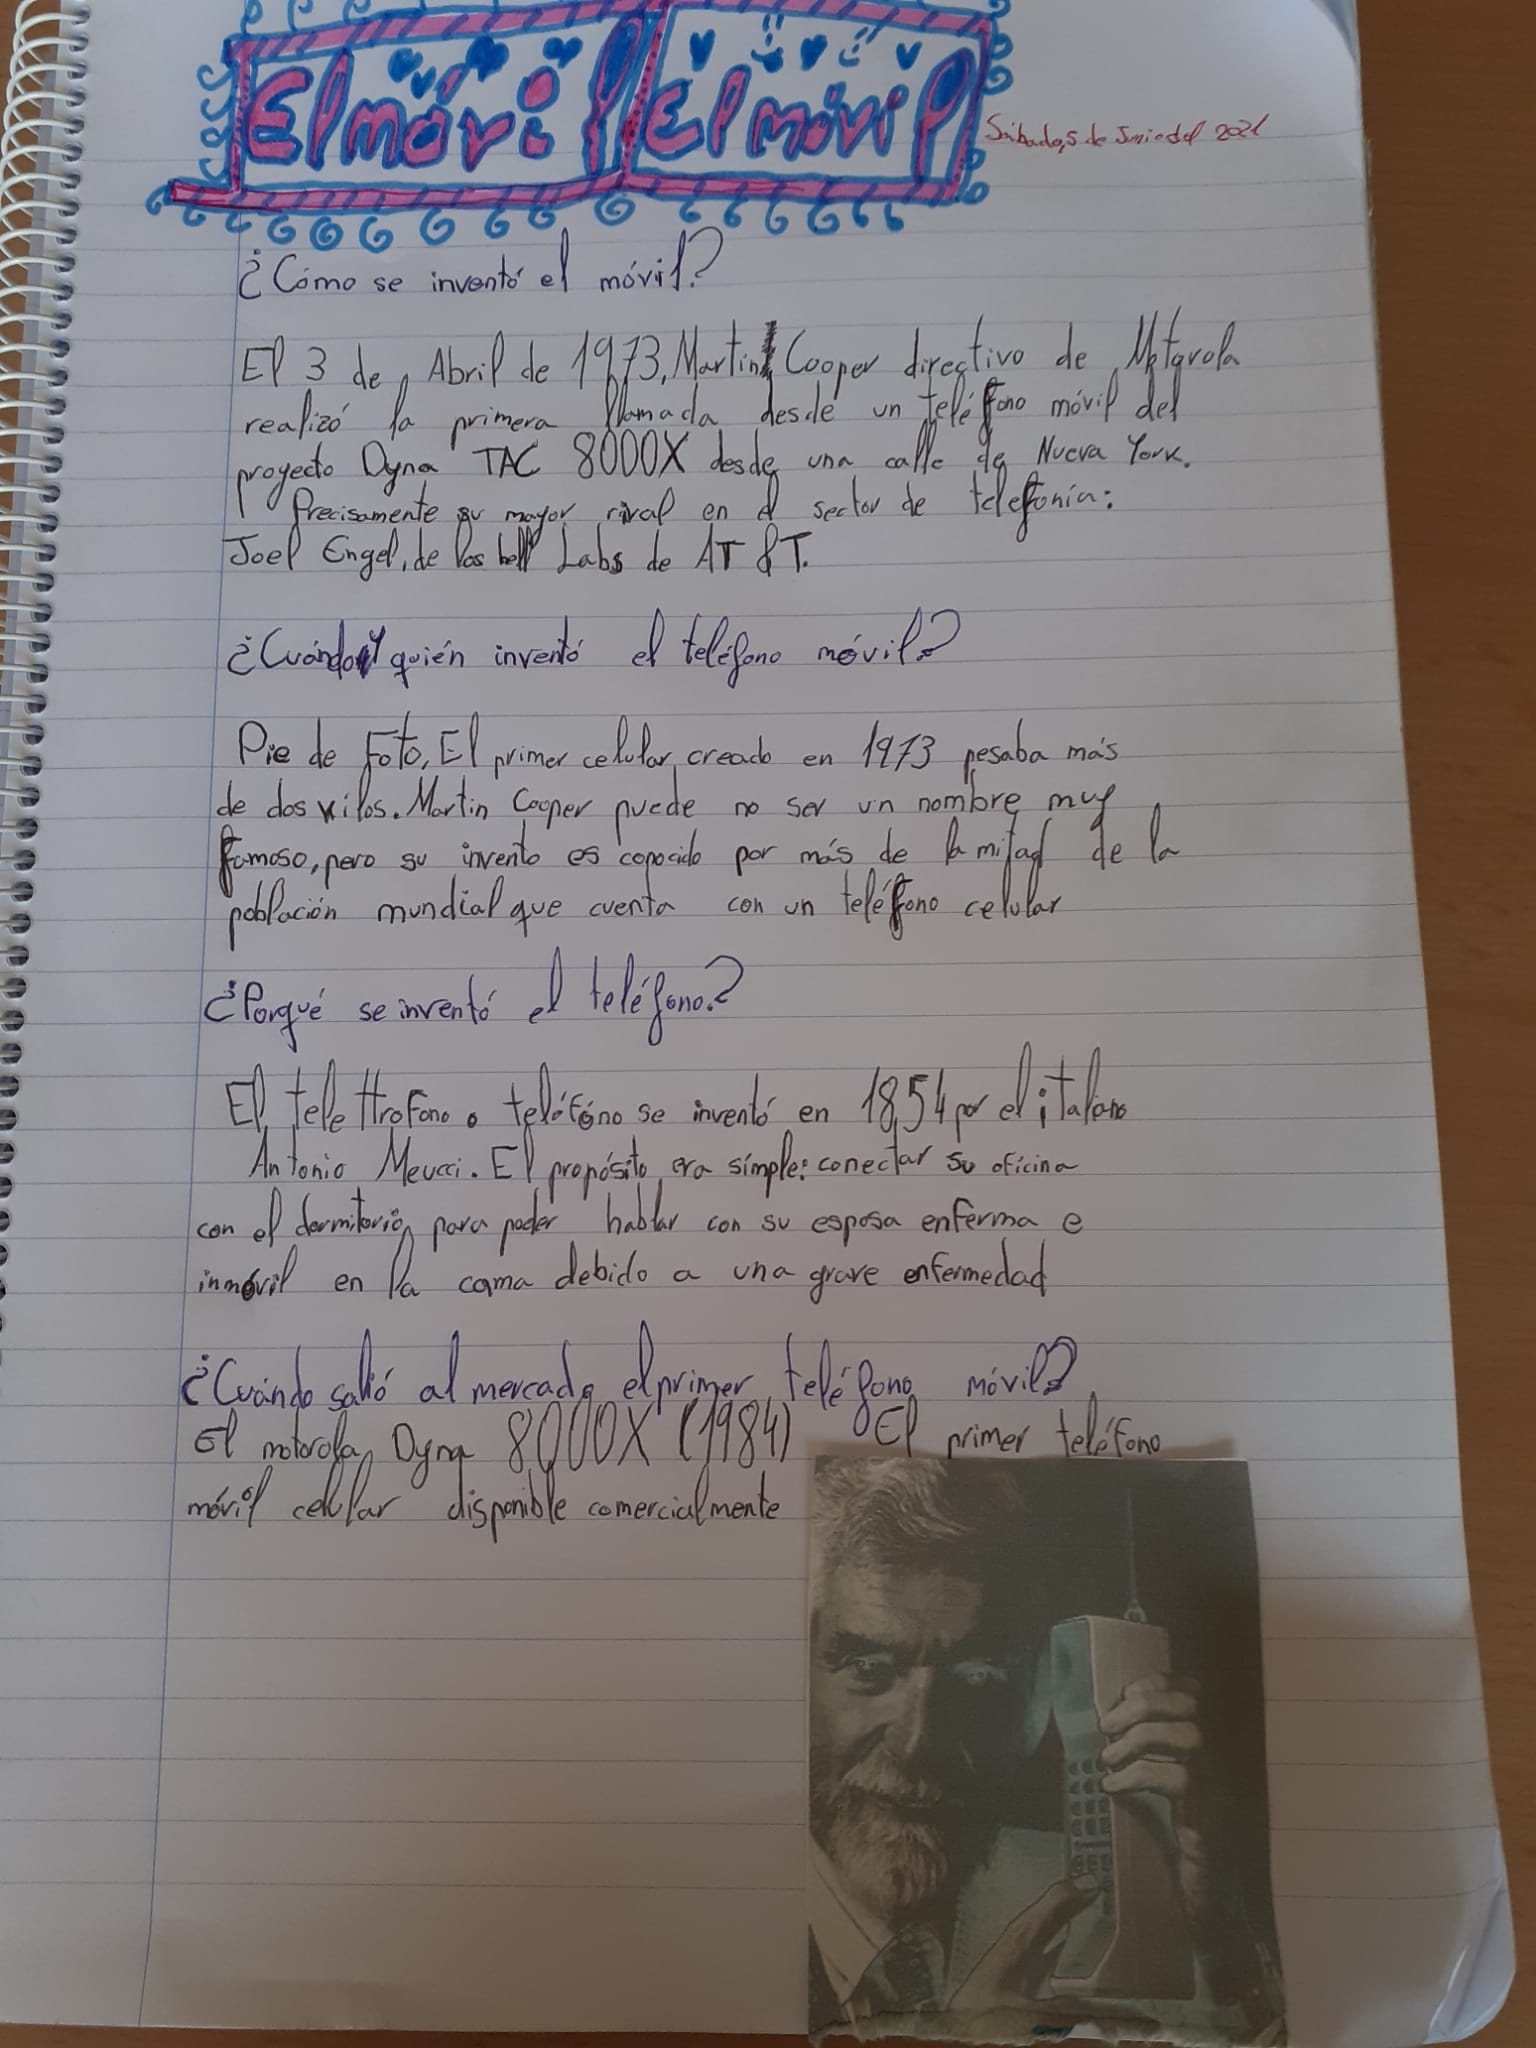 El móvil El móvil
Sábado, 5 de Junio del 2021
¿Cómo se inventó el móvil?
El 3 de Abril de 1973, Martin Cooper directivo de Motorola
realizó la primera llamada desde un teléfono móvil del
proyecto Dyna TAC 8000X desde una calle de Nueva York.
Precisamente su mayor rival en el sector de telefonía:
Joel Engel, de los bell Labs de AT & T.
¿Cuándo y quién inventó el teléfono móvil?
Pie de Foto, El primer celular creado en 1973 pesaba más
de dos kilos. Martin Cooper puede no ser un nombre muy
famoso, pero su invento es conocido por más de la mitad de la
población mundial que cuenta con un teléfono celular
¿Porqué se inventó el teléfono?
El telettrofono o teléfóno se inventó en 1854 por el italiano
Antonio Meucci. El propósito era simple: conectar su oficina
con el dormitorio para poder hablar con su esposa enferma e
inmóvil en la cama debido a una grave enfermedad
¿Cuándo salió al mercado el primer teléfono móvil?
El motorola Dyna 8000X (1984) El primer teléfono
móvil celular disponible comercialmente